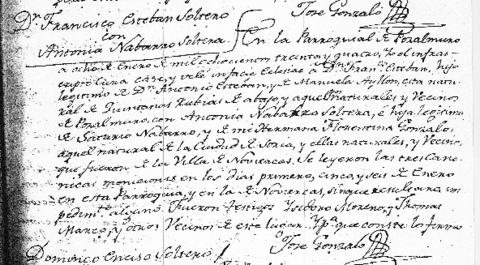 Dn. Francisco Esteban Soltero
con
Antonia Nabarro Soltera
Jose Gonzalo
En la Parroquial de Pozalmuro
a ocho de Enero de mil ochocientos treinta y quatro, Yo el infras-
cripto Cura casé, y velé infacie Eclesiae a Dn. Franco. Esteban, hijo
legitimo de Dn. Antonio Esteban, y de Manuela Ayllon, esta natu-
ral de Quintanas Rubias de abajo, y aquel naturales, y Vecinos
de Pozalmuro, con Antonia Nabarro Soltera, e hija legitima
de Saturio Nabarro, y de mi Hermana Florentina Gonzalo,
aquel natural de la Ciudad de Soria, y ellas naturales, y Vecinos,
que fueron de la Villa de Noviercas. Se leyeron las tres Cano-
nicas moniciones en los dias primero, cinco y seis de Enero
en esta Parroquia, y en la de Noviercas, sin que resultara im-
pedimto. alguno. Fueron testigos Ysidoro Moreno, y Thomas
Marco, y otros Vecinos de este lugar. Y pa. que conste lo firmo
Jose Gonzalo
Domingo Enciso Soltero